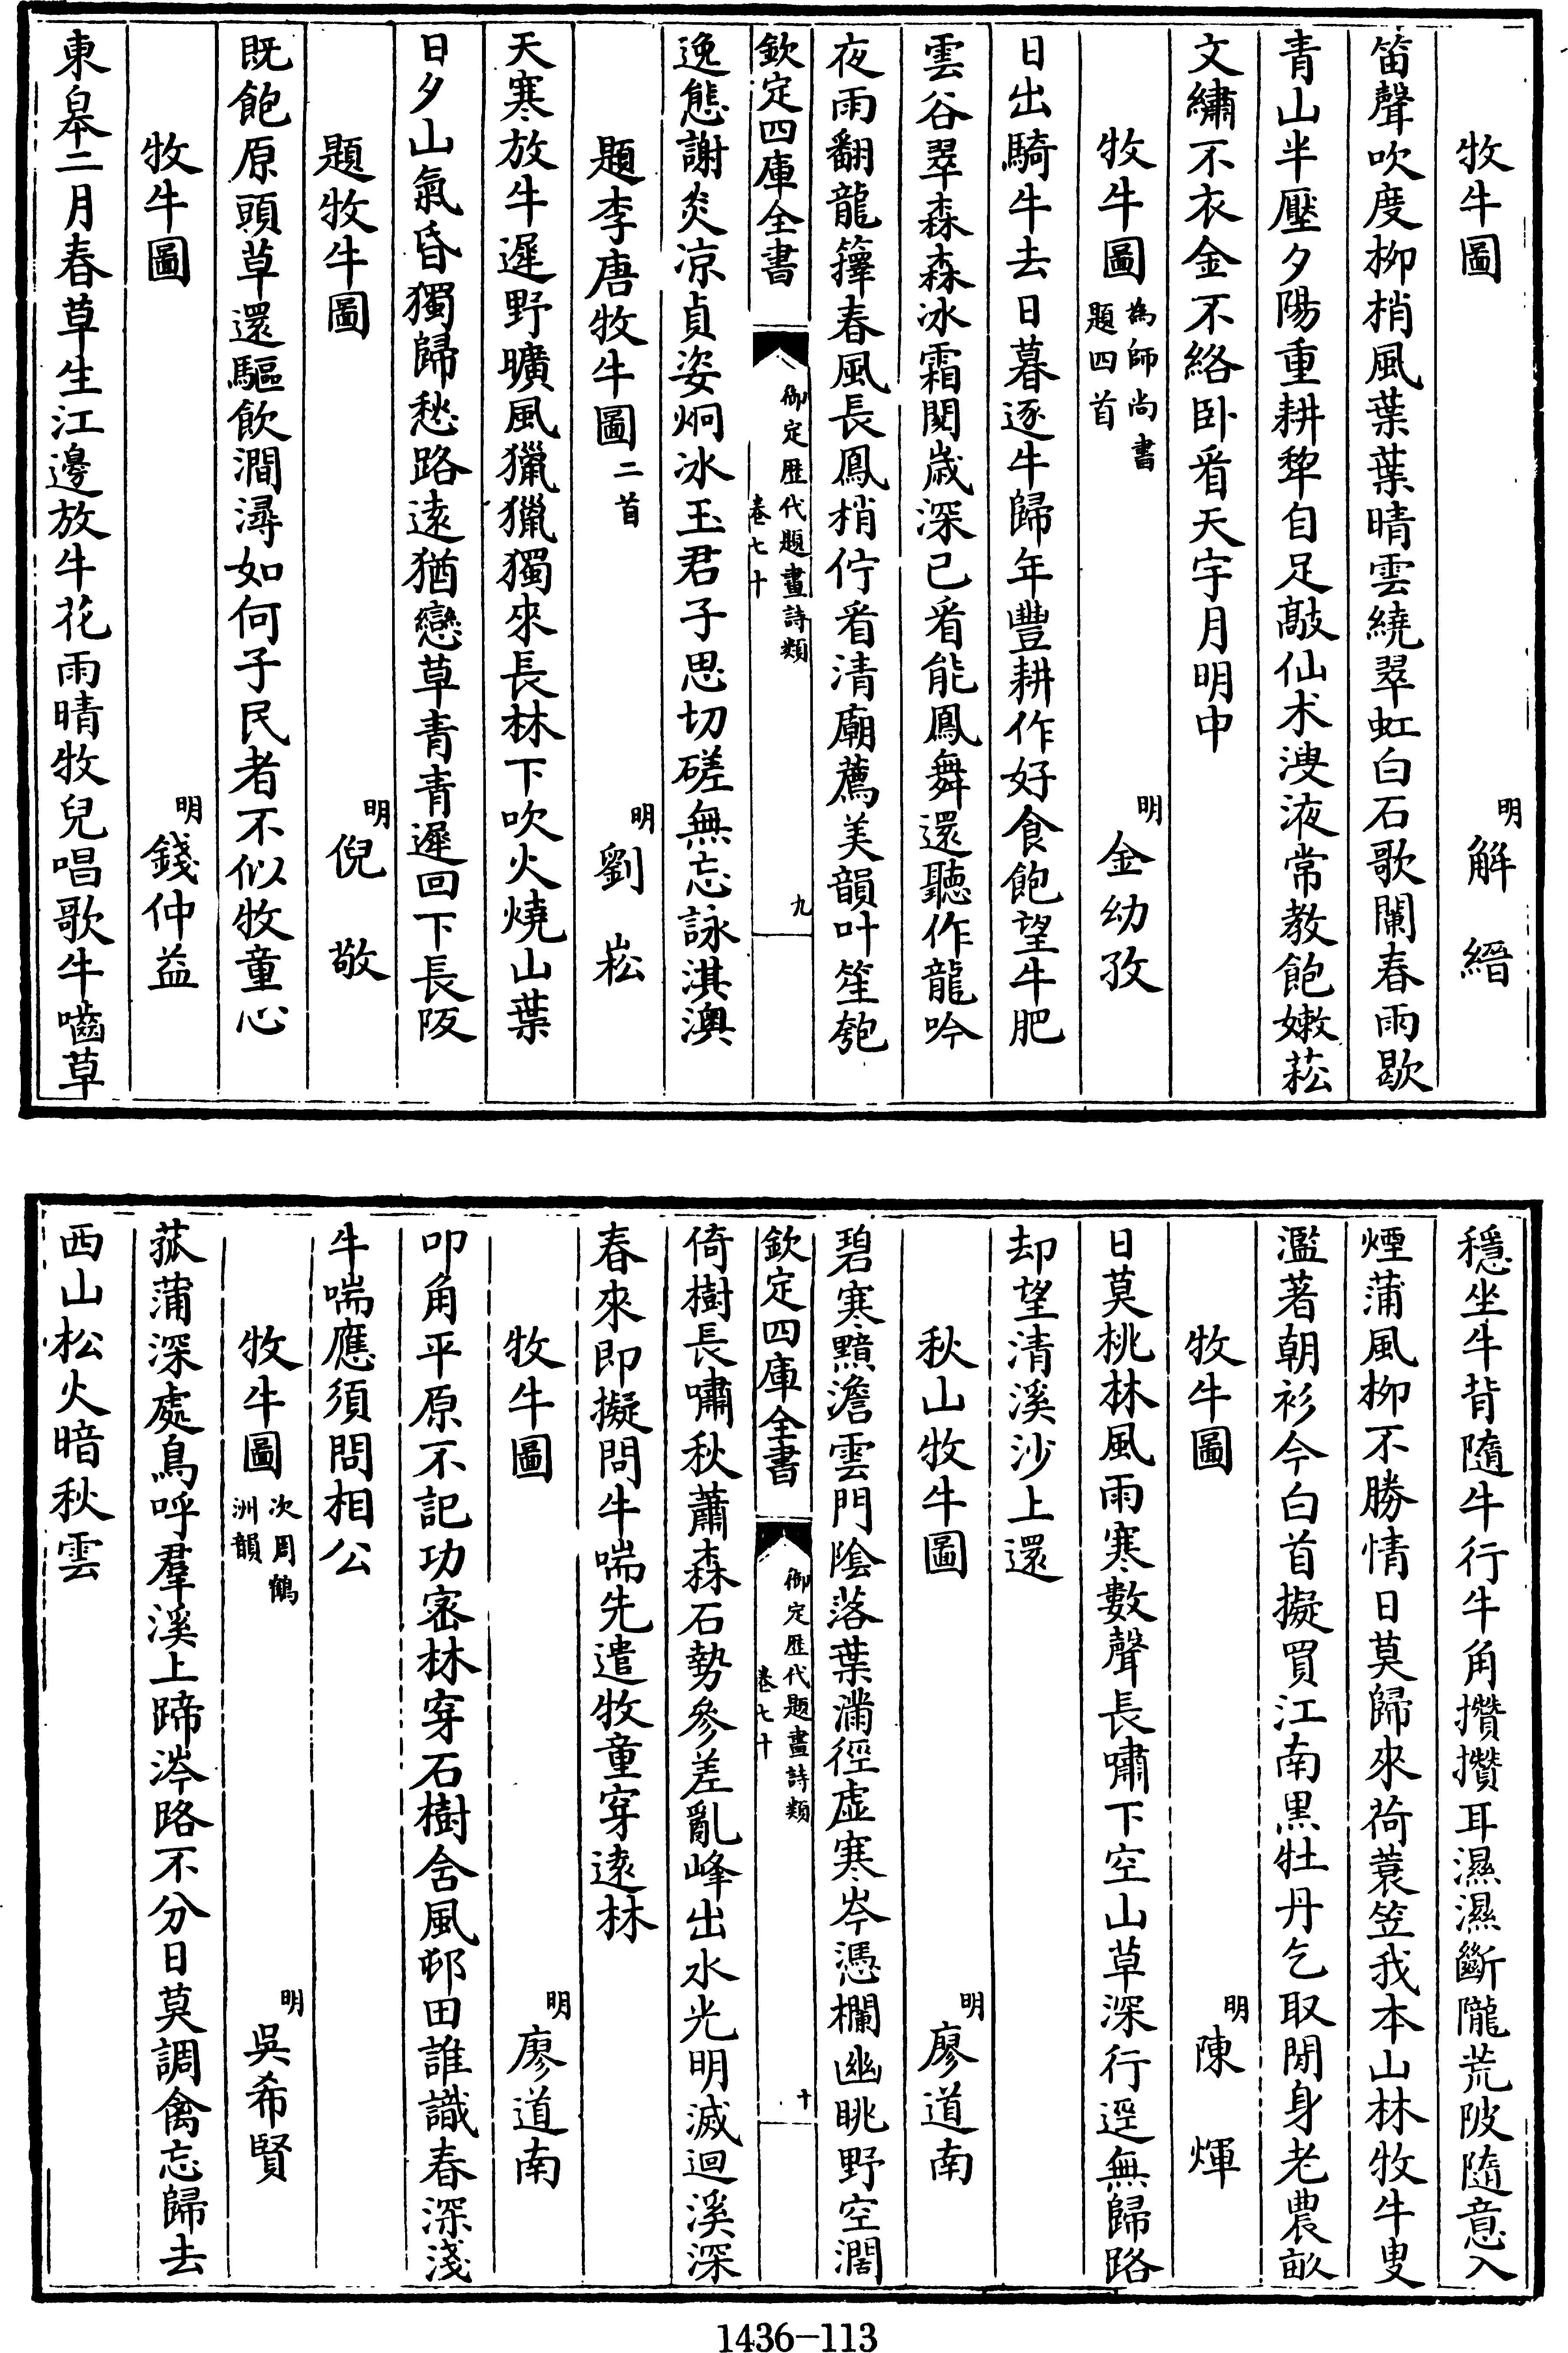 牧牛圖　明解縉
笛聲吹度柳梢風葉葉晴雲繞翠虹白石歌闌春雨歇
青山半壓夕陽重耕犂自足敲仙术溲液常教飽嫩菘
文繡不衣金不絡卧看天宇月明中
牧牛圖　為師尚書題四首　明金幼孜
日出騎牛去日暮逐牛歸年豐耕作好食飽望牛肥
雲谷翠森森冰霜閱歲深已看能鳳舞還聽作龍吟
夜雨翻龍籜春風長鳳梢佇看清廟薦美韻叶笙匏
欽定四庫全書　御定歷代題畫詩類卷七十　九
逸態謝炎凉貞姿炯冰玉君子思切磋無忘詠淇澳
題李唐牧牛圖二首　明劉崧
天寒放牛遲野曠風獵獵獨來長林下吹火燒山葉
日夕山氣昏獨歸愁路遠猶戀草青青遲回下長阪
題牧牛圖　明倪敬
既飽原頭草還驅飲澗潯如何子民者不似牧童心
牧牛圖　明錢仲益
東皋二月春草生江邊放牛花雨晴牧兒唱歌牛嚙草
穩坐牛背隨牛行牛角攢攢耳濕濕斷隴荒陂隨意入
煙蒲風柳不勝情日莫歸來荷蓑笠我本山林牧牛叟
濫著朝衫今白首擬買江南黑牡丹乞取閒身老農畝
牧牛圖　明陳煇
日莫桃林風雨寒數聲長嘯下空山草深行逕無歸路
却望清溪沙上還
秋山牧牛圖　明廖道南
碧寒黯澹雲門陰落葉滿徑虛寒岑憑欄幽眺野空濶
欽定四庫全書　御定歷代題畫詩類卷七十　十
倚樹長嘯秋蕭森石勢參差亂峰出水光明滅迴溪深
春來即擬問牛喘先遣牧童穿遠林
牧牛圖　明廖道南
叩角平原不記功密林穿石樹含風邨田誰識春深淺
牛喘應須問相公
牧牛圖　次周鶴洲韻　明吳希賢
菰蒲深處鳥呼羣溪上蹄涔路不分日莫調禽忘歸去
西山松火暗秋雲
1436-113